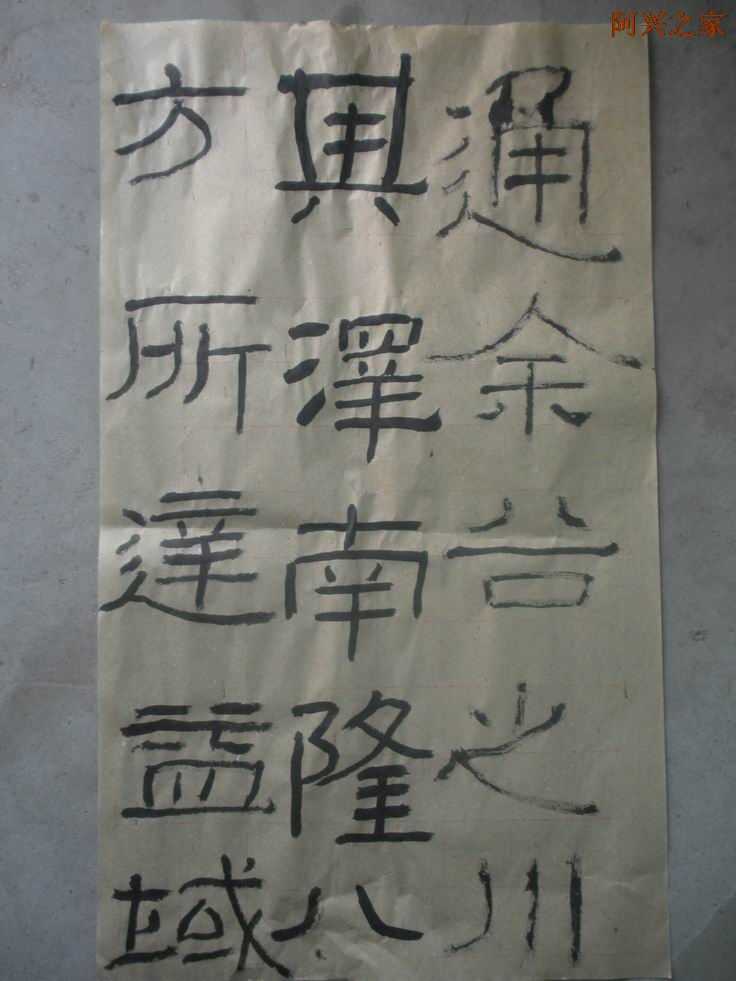 阿兴之家
通余谷之川
其澤南隆八
方所達益域